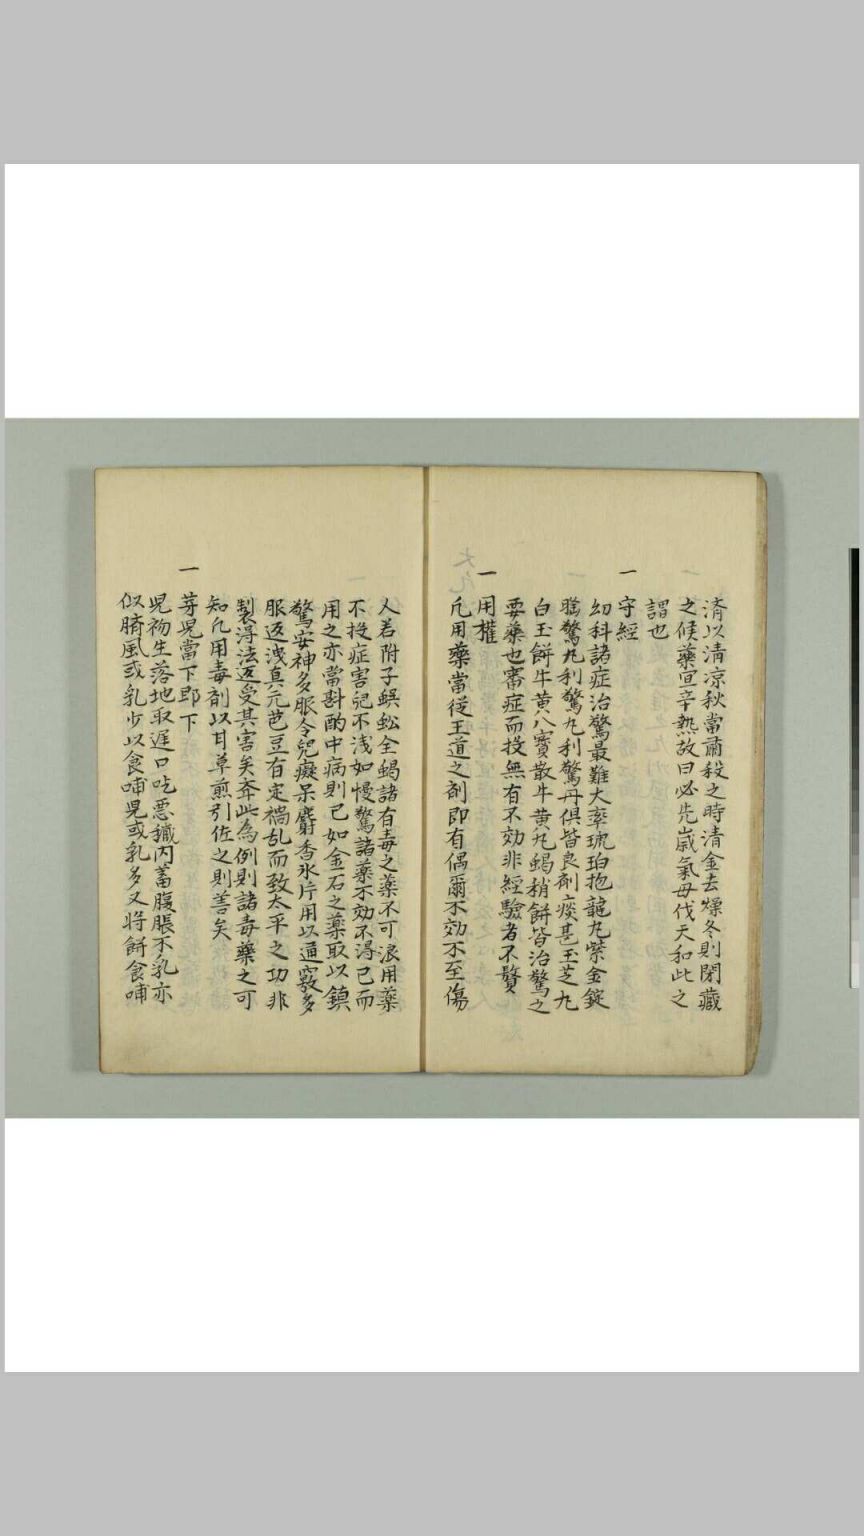 濟以清凉秋當肅殺之時清金去燥冬則閉藏
之候藥宜辛熱故曰必先歲氣毋伐天和此之
謂也
一 守經
幼科諸症治驚最難大率琥珀抱龍丸紫金錠
驚丸利驚丸利驚丹俱皆良劑痰甚玉芝丸
白玉餅牛黄八寳散牛黄丸蝎稍餅皆治驚之
要藥也審症而投無有不効非經驗者不贅
一 用權
凢用藥當從王道之劑即有偶爾不効不至傷
人若附子蜈蚣全蝎諸有毒之藥不可浪用藥
不投症害兒不浅如慢驚諸藥不効不得已而
用之亦當斟酌中病則已如金石之藥取以鎮
驚安神多服令兒癡呆麝香氷片用以通竅多
服返洩真元芭豆有定禍乱而致太平之功非
製淂法返受其害矣奔此為例則諸毒藥之可
知凢用毒劑以甘草煎引佐之則善矣
一 芽児當下即下
児初生落地取遲口吃惡穢内蓄腹脹不乳亦
似臍風或乳少以食哺児或乳多又將餅食哺